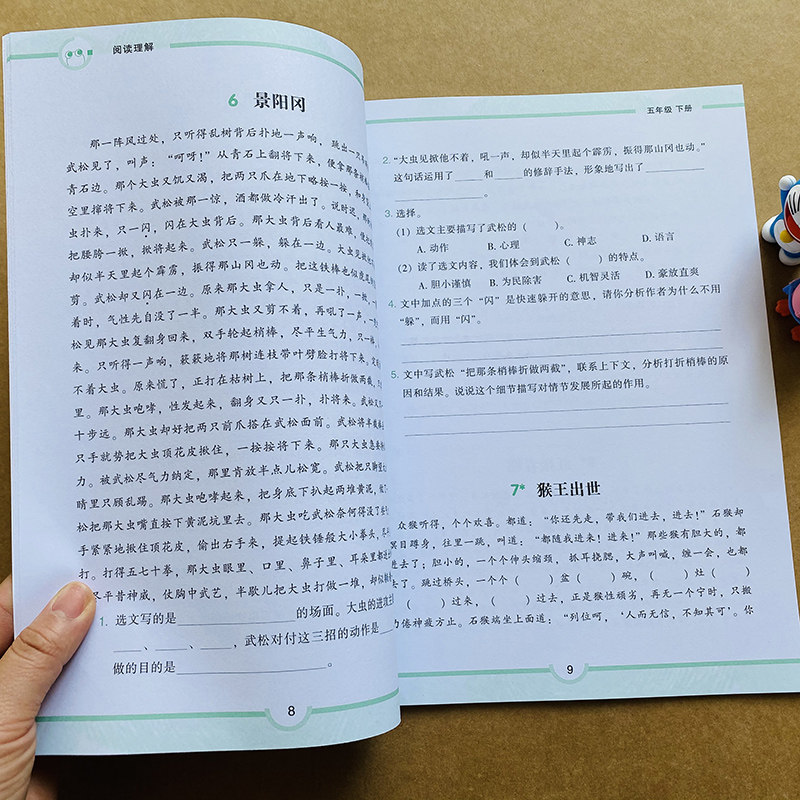 阅读理解
6 景阳冈
那一阵风过处，只听得乱树背后扑地一声响，跳出一只
武松见了，叫声：“呵呀！”从青石上翻将下来，便拿那条
青石边。那个大虫又饥又渴，把两只爪在地下略按一按，和
空里撺将下来。武松被那一惊，酒都做冷汗出了。说时迟，那
虫扑来，只一闪，闪在大虫背后。那大虫背后看人最难，便
把腰胯一掀，掀将起来。武松只一躲，躲在一边。大虫见
却似半天里起个霹雳，振得那山冈也动。把这铁棒也似
剪。武松却又闪在一边。原来那大虫拿人，只是一扑，一
着时，气性先自没了一半。那大虫又剪不着，再吼了一声，一
松见那大虫复翻身回来，双手轮起梢棒，尽平生气力，只一
来。只听得一声响，簌簌地将那树连枝带叶劈脸打将下来。
不着大虫。原来慌了，正打在枯树上，把那条梢棒折做两截，
里。那大虫咆哮，性发起来，翻身又只一扑，扑将来。武松又
十步远。那大虫却好把两只前爪搭在武松面前。武松将半
只手就势把大虫顶花皮揪住，一按按将下来。那只大虫急
力。被武松尽气力纳定，那里肯放半点儿松宽。武松把只脚
睛里只顾乱踢。那大虫咆哮起来，把身底下扒起两堆黄泥，
松把那大虫嘴直按下黄泥坑里去。那大虫吃武松奈何得没了
手紧紧地揪住顶花皮，偷出右手来，提起铁锤般大小拳头，
打。打得五七十拳，那大虫眼里、口里、鼻子里、耳朵里都
尽平昔神威，仗胸中武艺，半歇儿把大虫打做一堆，却似
1. 选文写的是______的场面。大虫的进攻
____、____、____，武松对付这三招的动作是
做的目的是______。
8
五年级 下册
2. “大虫见掀他不着，吼一声，却似半天里起个霹雳，振得那山冈也动。”
这句话运用了____和____的修辞手法，形象地写出了______
______。
3. 选择。
（1）选文主要描写了武松的（ ）。
A. 动作 B. 心理 C. 神志 D. 语言
（2）读了选文内容，我们体会到武松（ ）的特点。
A. 胆小谨慎 B. 为民除害 C. 机智灵活 D. 豪放直爽
4. 文中加点的三个“闪”是快速躲开的意思，请你分析作者为什么不用
“躲”，而用“闪”。
5. 文中写武松“把那条梢棒折做两截”，联系上下文，分析打折梢棒的原
因和结果。说说这个细节描写对情节发展所起的作用。
7* 猴王出世
众猴听得，个个欢喜。都道：“你还先走，带我们进去，进去！”石猴却
瞑目蹲身，往里一跳，叫道：“都随我进来！进来！”那些猴有胆大的，都
进去了；胆小的，一个个伸头缩颈，抓耳挠腮，大声叫喊，缠一会，也都
去了。跳过桥头，一个个（ ）盆（ ）碗，（ ）灶（ ）
（ ）过来，（ ）过去，正是猴性顽劣，再无一个宁时，只搬
力倦神疲方止。石猴端坐上面道：“列位呵，‘人而无信，不知其可’。你
9